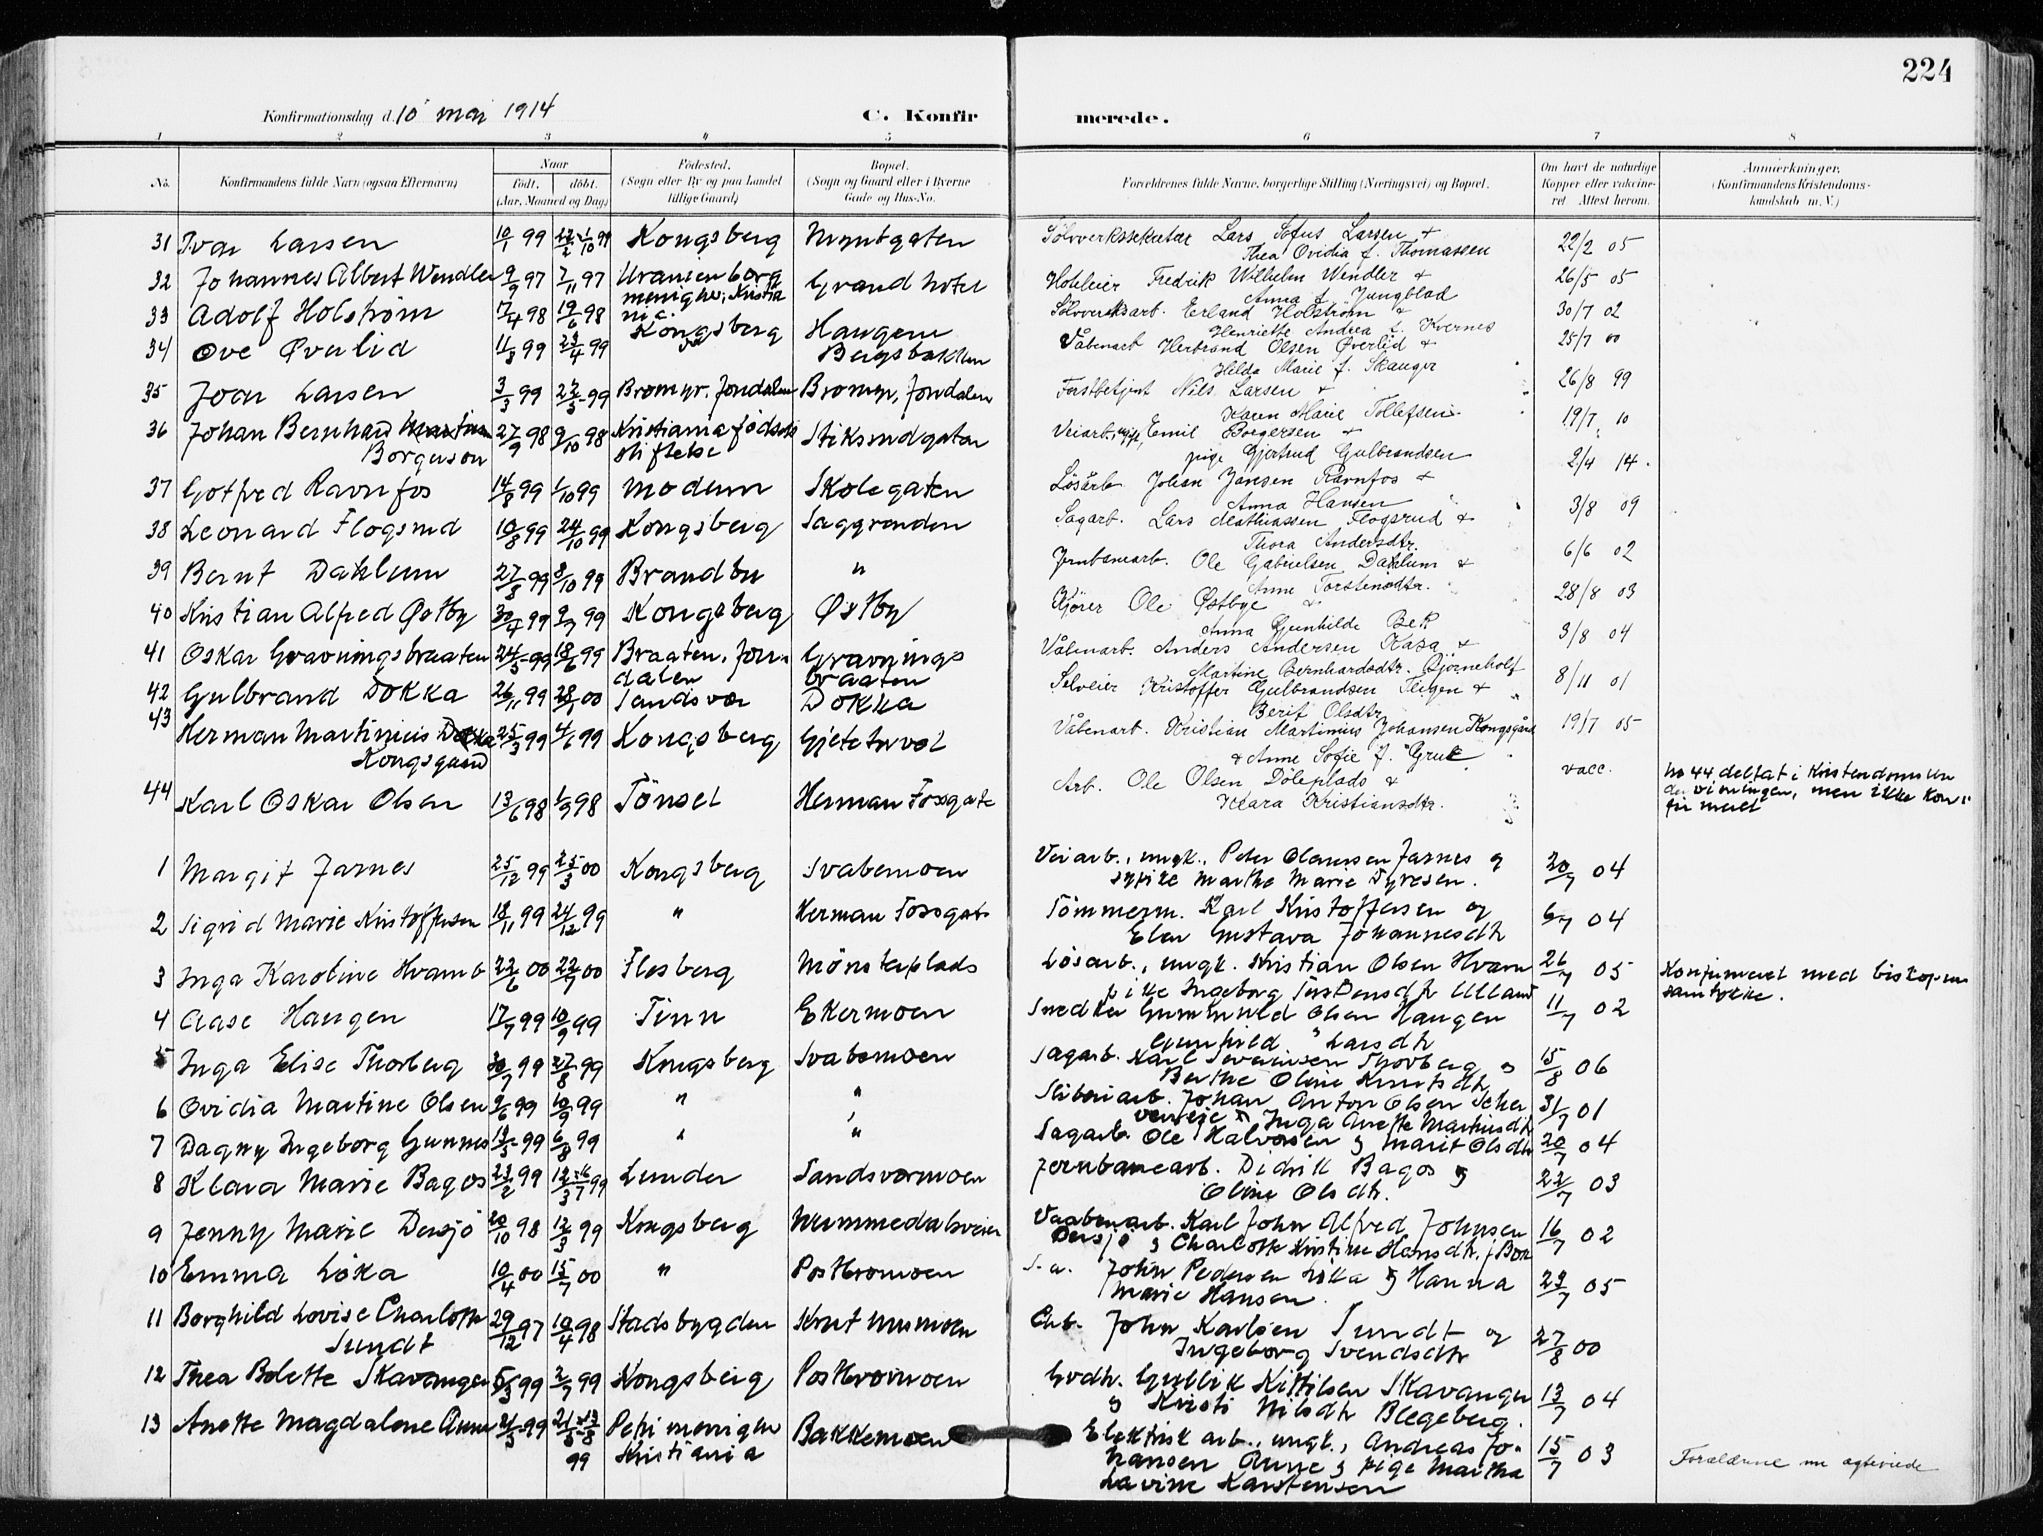 224
Konfirmationsdag d. 10 mai 1914
C. Konfirmerede.
1 2 3 4 5 6 7 8
No. Konfirmandens fulde Navn (ogsaa Efternavn) Naar født. døbt. (Aar, Maaned og Dag) Fødested. (Sogn eller By og paa Landet tillige Gaard) Bopæl. (Sogn og Gaard eller i Byerne Gade og Hus-No. Forældrenes fulde Navne, borgerlige Stilling (Næringsvei) og Bopæl. Om havt de naturlige Kopper eller vaksineret Attest herom. Anmærkninger. (Konfirmandens Kristendomskundskab m. V.)
31 Ivar Larsen 10/1 99 Kongsberg Myntgaten Sølvverkssekretær Lars Sofus Larsen + 22/2 05
Thea Ovidia f. Thomassen
32 Johannes Albert Wendler 9/9 97 7/11 97 Uranienborg Grand hotel Hoteleier Fredrik Wilhelm Wendler + 26/5 05
menighe, Kristia
nia. Anna f. Jungblad
33 Adolf Holstrøm 17/4 98 19/6 98 Kongsberg Haugene Sølvverksarb. Erland Holstrøm + 30/7 02
Henriette Andrea f. Kvernes
34 Ove Øverlid 11/3 99 23/4 99 Bergsbakken Våbenarb Herbrand Olsen Øverlid + 25/7 00
Hilda Marie f. Skauger
35 Joar Larsen 3/3 99 22/5 99 Bromyr, Jondalen Bromyr, Jondalen Forstbetjent Nils Larsen + 26/8 99
Karen Marie Tollefsen
36 Johan Bernhard 27/9 98 9/10 98 Kristiania fødsels Stiksrudgaten Veiarb., ugift, Emil Borgersen + 19/7 10
Borgerson stiftelse pige Gjertrud Gulbrandsen
37 Gotfred Ravnfos 14/8 99 1/10 99 Modum Skolegaten Løsarb Johan Jansen Ravnfos + 2/4 14.
Anna Hansen
38 Leonard Flogsrud 10/8 99 24/10 99 Kongsberg Saggrenden Sagarb. Lars Mathiassen Flogsrud + 3/8 09
Thora Andersdtr.
39 Bernt Daklum 27/8 99 8/10 99 Brandbu " Jernbanearb. Ole Gabrielsen Daklum + 6/6 02
Anne Torstensdtr.
40 Kristian Alfred Østby 30/4 99 9/7 99 Kongsberg Østby Kjører Ole Østbye + 28/8 03
Anna Gunhilde Bek
41 Oskar Gravningsbraaten 24/5 99 18/6 99 Braaten, Jon- Gravnings Våbenarb. Anders Andersen Kasa + 3/8 04
dalen braaten Martine Bernhardsdtr. Bjørneholf
42 Gulbrand Dokka 26/11 99 28/1 00 Sandsvær Dokka Selveier Kristoffer Gulbrandsen Teigen + 8/11 01
Berit Olsdtr
43 Herman Martinius 25/3 99 4/6 99 Kongsberg Gjetehvol Våbenarb. Kristian Martinius Johansen Kongsgård 19/7 05
Kongsgaard + Anne Sofie f. Grue
44 Karl Oskar Olsen 13/6 98 1/9 98 Tønset Herman Fossgate Arb. Ole Olsen Døleplads + vacc. No 44 deltat i kristendomsun
Klara Kristiansdtr. dervisningen, men ikke kon-
firmeret
1 Margit Jarnes 25/12 99 25/3 00 Kongsberg Svabemoen Veiarb., ungk., Peter Olaussen Jarnes og 20/7 04
Martha Marie Dyresen.
2 Sigrid Marie Kristoffersen 18/11 99 24/12 99 " Herman Fossgate Tømmerm. Karl Kristoffersen og 6/7 04
Elen Gustava Johannesdtr
3 Inga Karoline Hvamb 22/6 00 22/7 00 Flesberg Mønsterplads Løsarb., ungk. Kristian Olsen Hvam 26/7 05 Konfirmeret med biskopens
pike Ingeborg Torstensdtr Ulland samtykke.
4 Aase Haugen 17/7 99 10/9 99 Tinn Ekermoen Snedker Gunnuld Olsen Haugen 11/7 02
Gunhild Larsdtr
5 Inga Elise Thorberg 30/7 99 27/8 99 Kongsberg Svabemoen Sagarb. Karl Severinsen Thorberg og 15/8 06
Berthe Oline Knutsdtr
6 Ovidia Martine Olsen 9/6 99 10/9 99 " " Sliberiarb. Johan Anton Olsen 31/7 01
Inga Anette Martinsdtr
7 Dagny Ingeborg Gunnes 18/5 99 6/8 99 " " Sagarb. Ole Halvorsen og Marit Olsdtr 20/7 04
8 Klara Marie Bagos 23/2 99 Lunder Sandsværmoen Jernbanearb. Didrik Bagos og 22/7 03
Oline Olsdtr.
9 Jenny Marie Dersjø 20/10 98 12/3 99 Kongsberg Nummedalsveien Vaabenarb. Karl John Alfred Johnsen 16/7 02
Dersjø og Charlotte Kristine Hansdtr. f. Bor
10 Emma Løka 10/4 00 15/7 00 " Postbromoen S.a. John Pedersen Løka og Hanna 29/7 05
Marie Hansen.
11 Borghild Lovise Charlotte 29/12 97 10/4 98 Stadsbygden Krutmusmoen Erb. John Karlsen Sundt og 27/8 00
Sundt Ingeborg Svendsdtr
12 Thea Bolette Skavanger 5/3 99 2/7 99 Kongsberg Postbromoen Gvdbr. Gullik Kittilsen Skavanger 13/7 04
og Kristi Nilsdtr Blegeberg.
13 Anette Magdalene Aune 21/3 99 Petri menighet Bakkemoen Elektrisk arb., ungk., Andreas Jo- 15/7 03 Forældrene nu egteviede
99 Kristiania hansen Aune og pige Martha
Lavine Karstensen